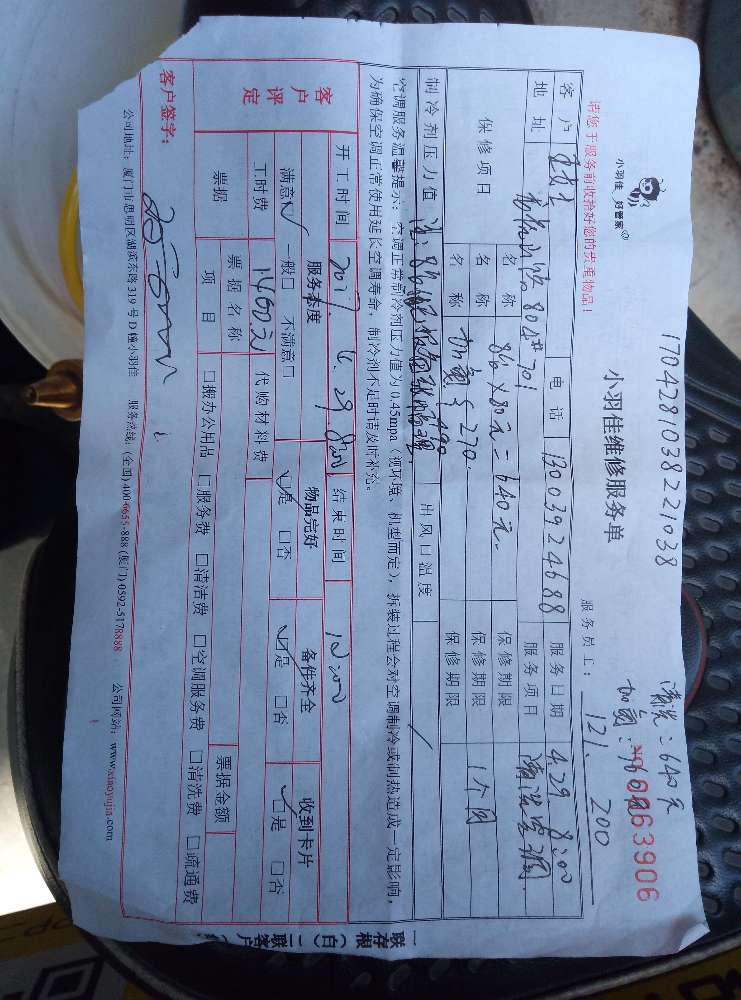 17042810382 21038
清洗:640元
加氟:960元
小羽佳 好管家
小羽佳维修服务单
NO 0063906
请您于服务前收拾好您的贵重物品!
服务员工: 121. 200
客户 电话 13003924688 服务日期 4.29 8:00
地址 80#701 服务项目 清洗空调
保修项目 名称 8台×80元=640元. 保修期限
名称 加氟 保修期限 1个月
名称 保修期限
制冷剂压力值 出风口温度 /
空调服务温馨提示:空调正常制冷剂压力值为0.45mpa(视环境、机型而定),拆装过程会对空调制冷或制热造成一定影响,
为确保空调正常使用延长空调寿命,制冷剂不足时请及时补充。
开工时间 2017. 4. 29 8:00 结束时间 12:00
客户评定 服务态度 物品完好 备件齐全 收到卡片
满意☑ 一般□ 不满意□ ☑是 □否 ☑是 □否 ☑是 □否
工时费 1460元 代购材料费
票据 票据名称 票据金额
项目 □搬办公用品 □服务费 □清洁费 □空调服务费 □清洗费 □疏通费
客户签字:
公司地址:厦门市思明区湖滨东路319号D幢小羽佳 服务热线:(全国)400-6655-888 (厦门) 0592-5178888 公司网站:www.xiaoyujia.com
一联存根(白) 二联客户